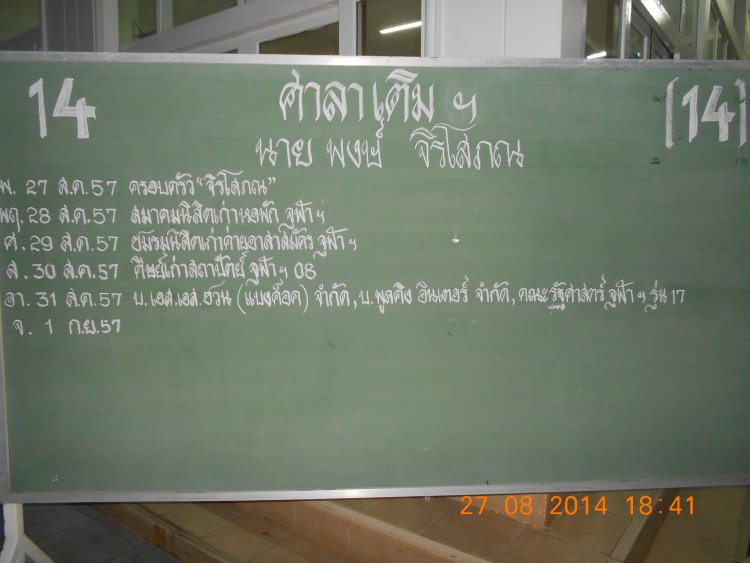 14 ศาลาเติม ฯ [14]
นาย พงษ์ จิรโสภณ
พ. 27 ส.ค. 57 ครอบครัว "จิรโสภณ"
พฤ. 28 ส.ค. 57 สมาคมนิสิตเก่าหอพัก จุฬาฯ
ศ. 29 ส.ค. 57 ชมรมนิสิตเก่าค่ายอาสาสมัคร จุฬาฯ
ส. 30 ส.ค. 57 ศิษย์เก่าสถาปัตย์ จุฬาฯ 08
อา. 31 ส.ค. 57 บ. เอส.เอส.ฮวน (แบงค็อค) จำกัด, บ. พูลคิง อินเตอร์ จำกัด, คณะรัฐศาสตร์ จุฬาฯ รุ่น 17
จ. 1 ก.ย. 57
27.08.2014 18:41